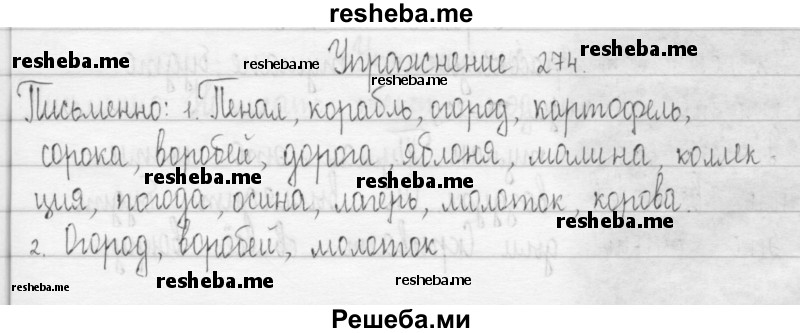 resheba.me
Упражнение 274.
resheba.me
resheba.me
resheba.me
Письменно: 1. Пенал, корабль, огород, картофель,
сорока, воробей, дорога яблоня малина, коллек-
resheba.me
resheba.me
ция, погода, осина, лагерь, молоток, корова.
resheba.me
2. Огород, воробей, молоток
resheba.me
resheba.me
resheba.me
Решеба.ми